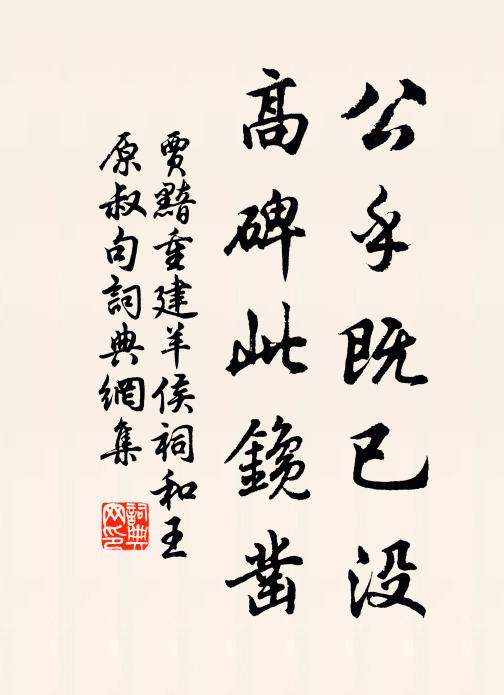 公乎既已没
高碑此鑱凿
贾黯重建羊侯祠和王
原叔句詞典網集
詞典网印